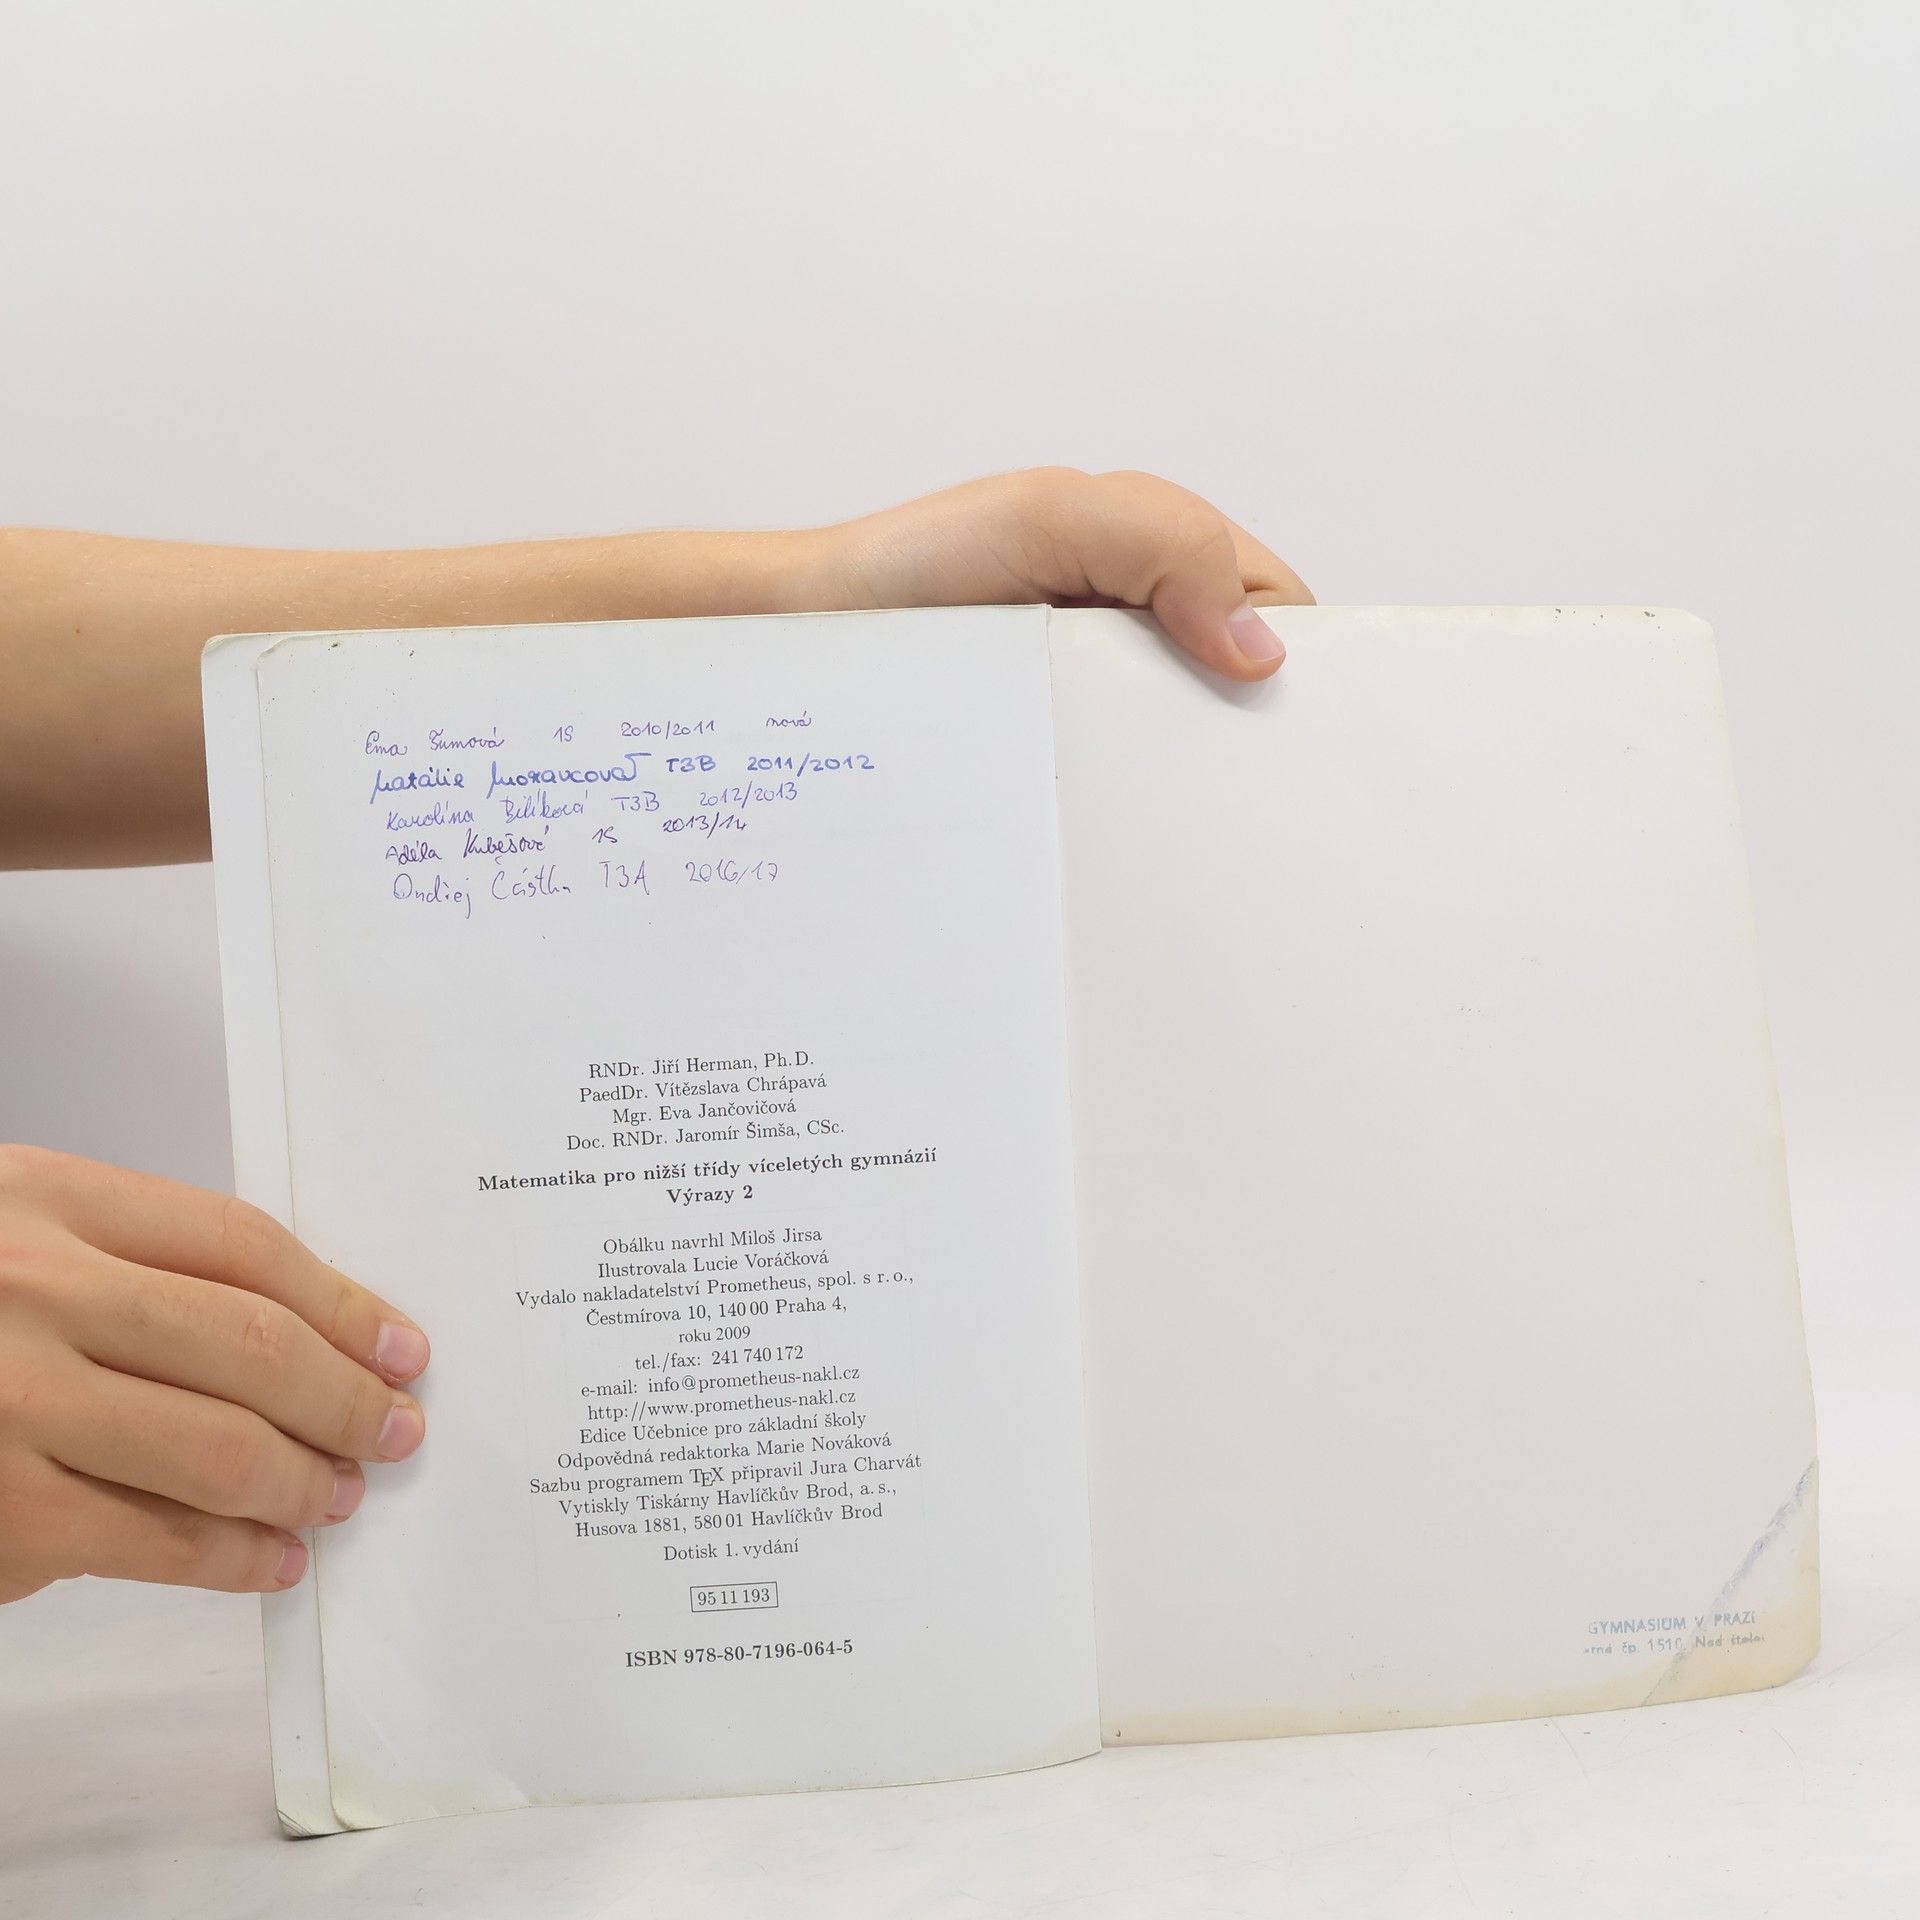 Ema Šumová 1S 2010/2011 nová
Natálie Moravcová T3B 2011/2012
Karolína Bilíková T3B 2012/2013
Adéla Kubešová 1S 2013/14
Ondřej Částka T3A 2016/17
RNDr. Jiří Herman, Ph.D.
PaedDr. Vítězslava Chrápavá
Mgr. Eva Jančovičová
Doc. RNDr. Jaromír Šimša, CSc.
Matematika pro nižší třídy víceletých gymnázií
Výrazy 2
Obálku navrhl Miloš Jirsa
Ilustrovala Lucie Voráčková
Vydalo nakladatelství Prometheus, spol. s r. o.,
Čestmírova 10, 140 00 Praha 4,
roku 2009
tel./fax: 241 740 172
e-mail: info@prometheus-nakl.cz
http://www.prometheus-nakl.cz
Edice Učebnice pro základní školy
Odpovědná redaktorka Marie Nováková
Sazbu programem TEX připravil Jura Charvát
Vytiskly Tiskárny Havlíčkův Brod, a. s.,
Husova 1881, 580 01 Havlíčkův Brod
Dotisk 1. vydání
95 11 193
ISBN 978-80-7196-064-5
GYMNASIUM V PRAZE
čp. 1510, Nad